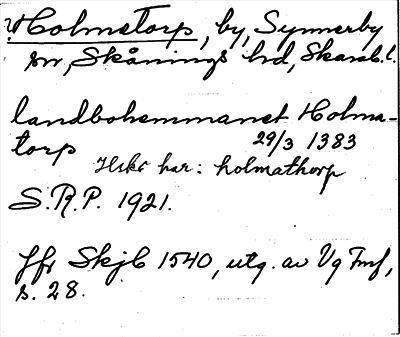 Holmstorp, by, Synnerby
sn, Skånings hd, Skarab. l.
landbohemmanet Holma-
torp 29/3 1383
Hskr har: holmathorp
S.R.P. 1921.
Jfr Skjb 1540, utg. av Vg Fmf,
s. 28.